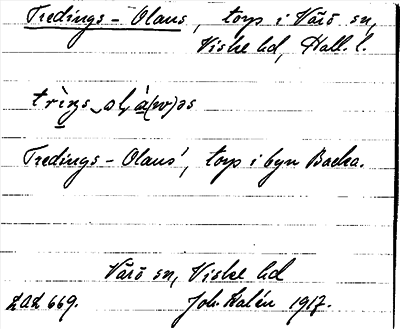 Tredings-Olaus, torp i Värö sn,
Viske hd, Hall. l.
Tredings-Olaus', torp i byn Backa.
Värö sn, Viske hd
LAL 669. Joh. Kalén 1917.